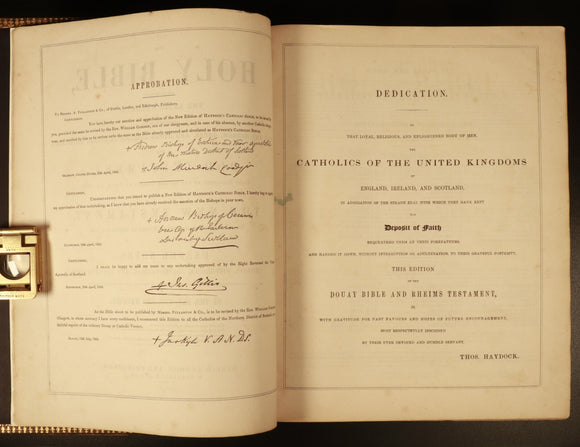 APPROBATION.
To Messrs. A. Fullarton & Co., of Dublin, London, and Edinburgh, Publishers.
Gentlemen,
You have hereby our sanction and approbation of the New Edition of Haydock's Catholic Bible, to be issued by
you, provided the same be revised by the Rev. William Gordon, one of our clergymen, and in case of his absence, by another Catholic clergy-
man, and certified by this or by others to be the same as the Bible already approved and circulated as Haydock's Catholic Bible.
+ Andrew Bishop of
John Murdoch Coadjr
Gentlemen,
Understanding that you intend to publish a New Edition of Haydock's Catholic Bible, I hereby beg to
my approbation of that undertaking, as I know that you have already received the sanction of the Bishops in your town.
+ Andrew Bishop of Ceramis
Vicar Ap. of the Eastern
District of Scotland
Gentlemen,
I shall be happy to add my name to any undertaking approved of by the Right Reverend the Vicars
Apostolic of Scotland.
+ Jas. Gillis
As the Bible about to be published by Messrs. Fullarton & Co., is to be revised by the Rev. William Gordon
Glasgow, in whose accuracy I have every confidence, I recommend this Edition to all the Catholics of the Northern District of Scotland as a
faithful reprint of the ordinary Douay or Catholic Version.
+ Jas Kyle V. A. N. D. S.
HOLY BIBLE,
DEDICATION.
TO
THAT LOYAL, RELIGIOUS, AND ENLIGHTENED BODY OF MEN,
THE
CATHOLICS OF THE UNITED KINGDOMS
OF
ENGLAND, IRELAND, AND SCOTLAND,
IN ADMIRATION OF THE STEADY ZEAL WITH WHICH THEY HAVE KEPT
THE
Deposit of Faith
BEQUEATHED THEM BY THEIR FOREFATHERS,
AND HANDED IT DOWN, WITHOUT INTERRUPTION OR ADULTERATION, TO THEIR GRATEFUL POSTERITY,
THIS EDITION
OF THE
DOUAY BIBLE AND RHEIMS TESTAMENT,
IS
WITH GRATITUDE FOR PAST FAVOURS AND HOPES OF FUTURE ENCOURAGEMENT,
MOST RESPECTFULLY INSCRIBED
BY THEIR EVER DEVOTED AND HUMBLE SERVANT,
THOS. HAYDOCK.